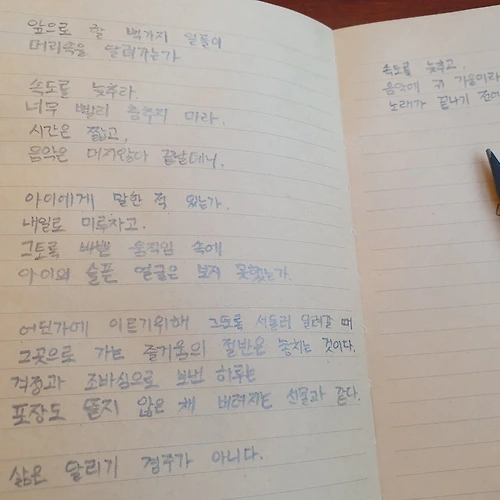 앞으로 할 백가지 일들이
머리속을 달려가는가
속도를 늦추라.
너무 빨리 춤추지 마라.
시간은 짧고,
음악은 머지않아 끝날테니.
아이에게 말한 적 있는가.
내일로 미루자고.
그토록 바쁜 움직임 속에
아이의 슬픈 얼굴은 보지 못했는가.
어딘가에 이르기위해 그토록 서둘러 달려갈 때
그곳으로 가는 즐거움의 절반은 놓치는 것이다.
걱정과 조바심으로 보낸 하루는
포장도 뜯지 않은 채 버려지는 선물과 같다.
삶은 달리기 경주가 아니다.
속도를 늦추고,
음악에 귀 기울이라
노래가 끝나기 전에